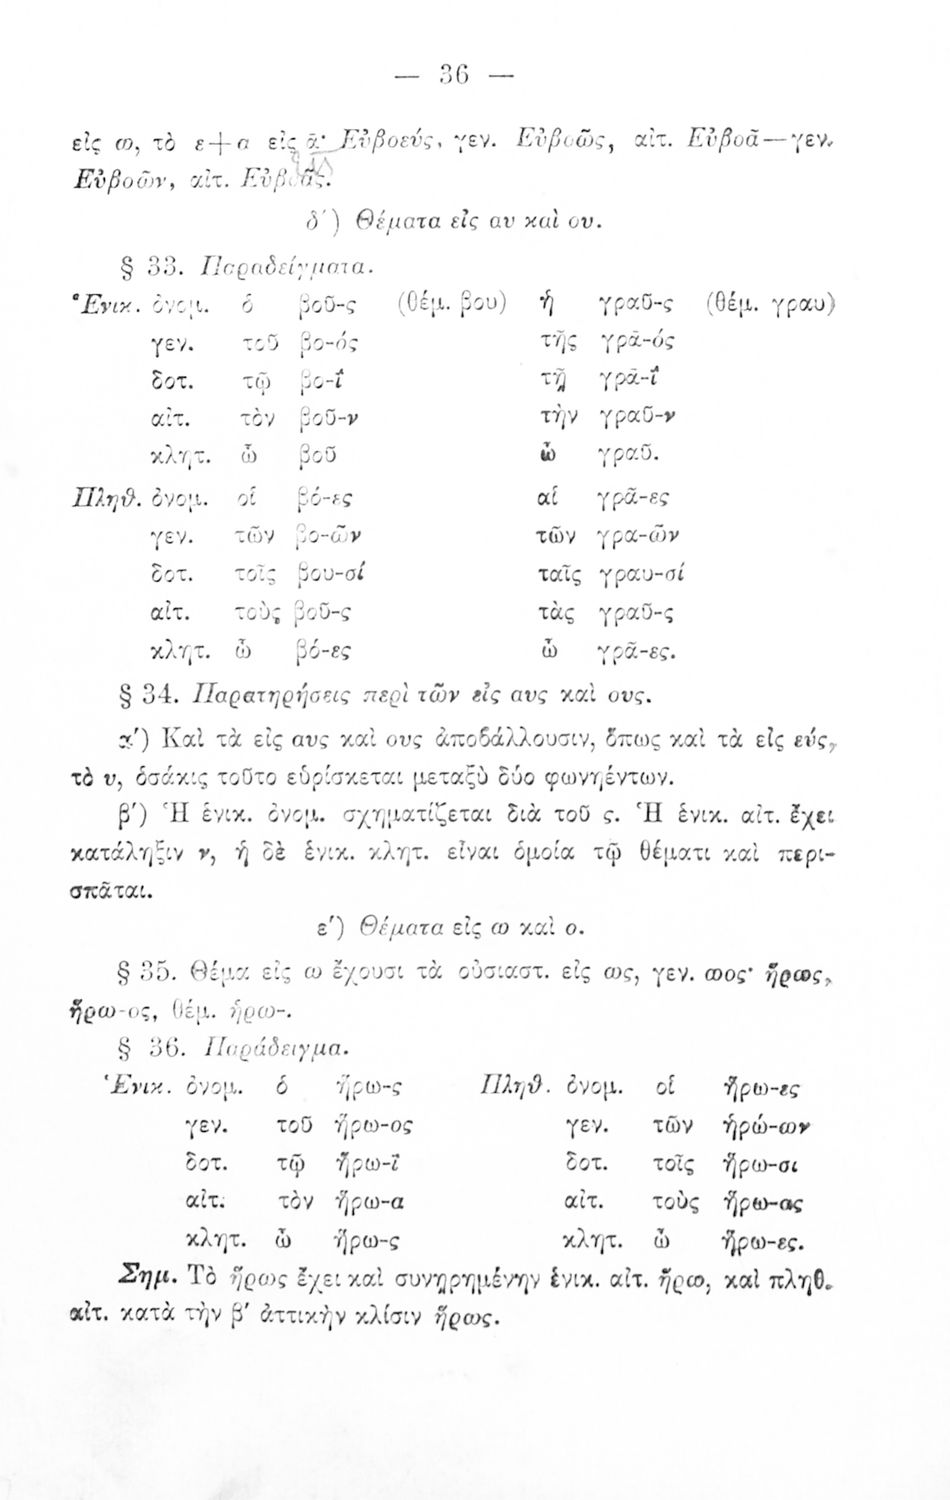 — 36 —
εἰς ω, τὸ ε+α εἰς ᾱ· Εὐβοεύς, γεν. Εὐβοῶς, αἰτ. Εὐβοᾶ—γεν.
Εὐβοῶν, αἰτ. Εὐβοᾶς.
δ΄) Θέματα εἰς αυ καὶ ου.
§ 33. Παραδείγματα.
Ἑνικ. ὀνομ. ὁ βοῦ-ς (θέμ. βου) ἡ γραῦ-ς (θέμ. γραυ)
γεν. τοῦ βο-ός τῆς γρᾱ-ός
δοτ. τῷ βο-ΐ τῇ γρᾱ-ΐ
αἰτ. τὸν βοῦ-ν τὴν γραῦ-ν
κλητ. ὦ βοῦ ὦ γραῦ.
Πληθ. ὀνομ. οἱ βό-ες αἱ γρᾶ-ες
γεν. τῶν βο-ῶν τῶν γρα-ῶν
δοτ. τοῖς βου-σί ταῖς γραυ-σί
αἰτ. τοὺς βοῦ-ς τὰς γραῦ-ς
κλητ. ὦ βό-ες ὦ γρᾶ-ες.
§ 34. Παρατηρήσεις περὶ τῶν εἰς αυς καὶ ους.
α΄) Καὶ τὰ εἰς αυς καὶ ους ἀποβάλλουσιν, ὅπως καὶ τὰ εἰς εύς,
τὸ υ, ὁσάκις τοῦτο εὑρίσκεται μεταξὺ δύο φωνηέντων.
β΄) Ἡ ἑνικ. ὀνομ. σχηματίζεται διὰ τοῦ ς. Ἡ ἑνικ. αἰτ. ἔχει
κατάληξιν ν, ἡ δὲ ἑνικ. κλητ. εἶναι ὁμοία τῷ θέματι καὶ περι-
σπᾶται.
ε΄) Θέματα εἰς ω καὶ ο.
§ 35. Θέμα εἰς ω ἔχουσι τὰ οὐσιαστ. εἰς ως, γεν. ωος· ἥρως,
ἥρω-ος, θέμ. ἡρω-.
§ 36. Παράδειγμα.
Ἑνικ. ὀνομ. ὁ ἥρω-ς Πληθ. ὀνομ. οἱ ἥρω-ες
γεν. τοῦ ἥρω-ος γεν. τῶν ἡρώ-ων
δοτ. τῷ ἥρω-ϊ δοτ. τοῖς ἥρω-σι
αἰτ. τὸν ἥρω-α αἰτ. τοὺς ἥρω-ας
κλητ. ὦ ἥρω-ς κλητ. ὦ ἥρω-ες.
Σημ. Τὸ ἥρως ἔχει καὶ συνῃρημένην ἑνικ. αἰτ. ἥρω, καὶ πληθ.
αἰτ. κατὰ τὴν β΄ ἀττικὴν κλίσιν ἥρως.